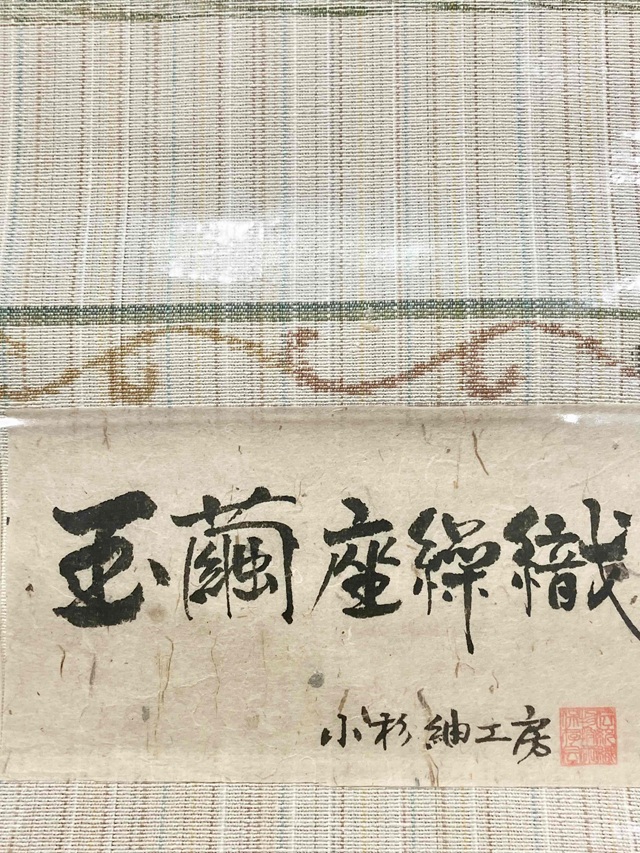 玉繭座繰織
小杉紬工房